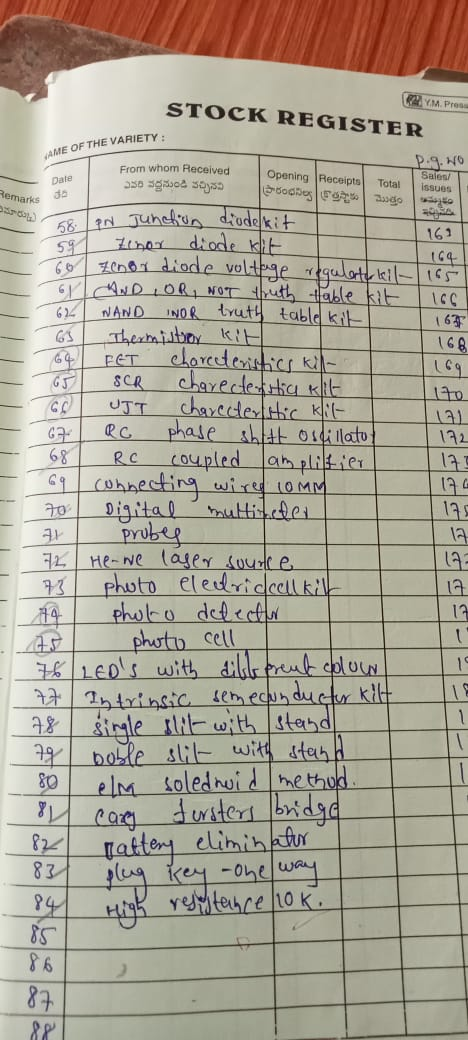 Y.M. Press
STOCK REGISTER
NAME OF THE VARIETY :
P.g. NO
Remarks
Date From whom Received Opening Receipts Total Sales/ issues
తేది ఎవరి వద్దనుండి వచ్చినవి ప్రారంభనిల్వ మొత్తం
58. PN Junction diode kit 163
59 Zenor diode kit 164
60 Zenor diode voltage regulator kit 165
61 (AND, OR, NOT truth table kit 166
62 NAND, NOR truth table kit
63 Thermistor kit 168
64 FET charecteristics kit 169
65 SCR charecteristic kit 170
66 UJT charecteristic kit 171
67 RC phase shift oscillator 172
68 RC coupled amplifier 17
69 connecting wires 10MM 17
70 Digital multimeter 17
71 probes 17
72 He-Ne laser source 17
73 photo electric cell kit 17
74 photo detector 17
75 photo cell 1
76 LED's with different colour 1
77 Intrinsic semeconductor kit 18
78 single slit with stand 1
79 Doble slit with stand 1
80 e/m solednoid method. 1
81 carey fursters bridge
82 Battery eliminator
83 plug key - one way
84 High resistance 10 K.
85
86
87
88